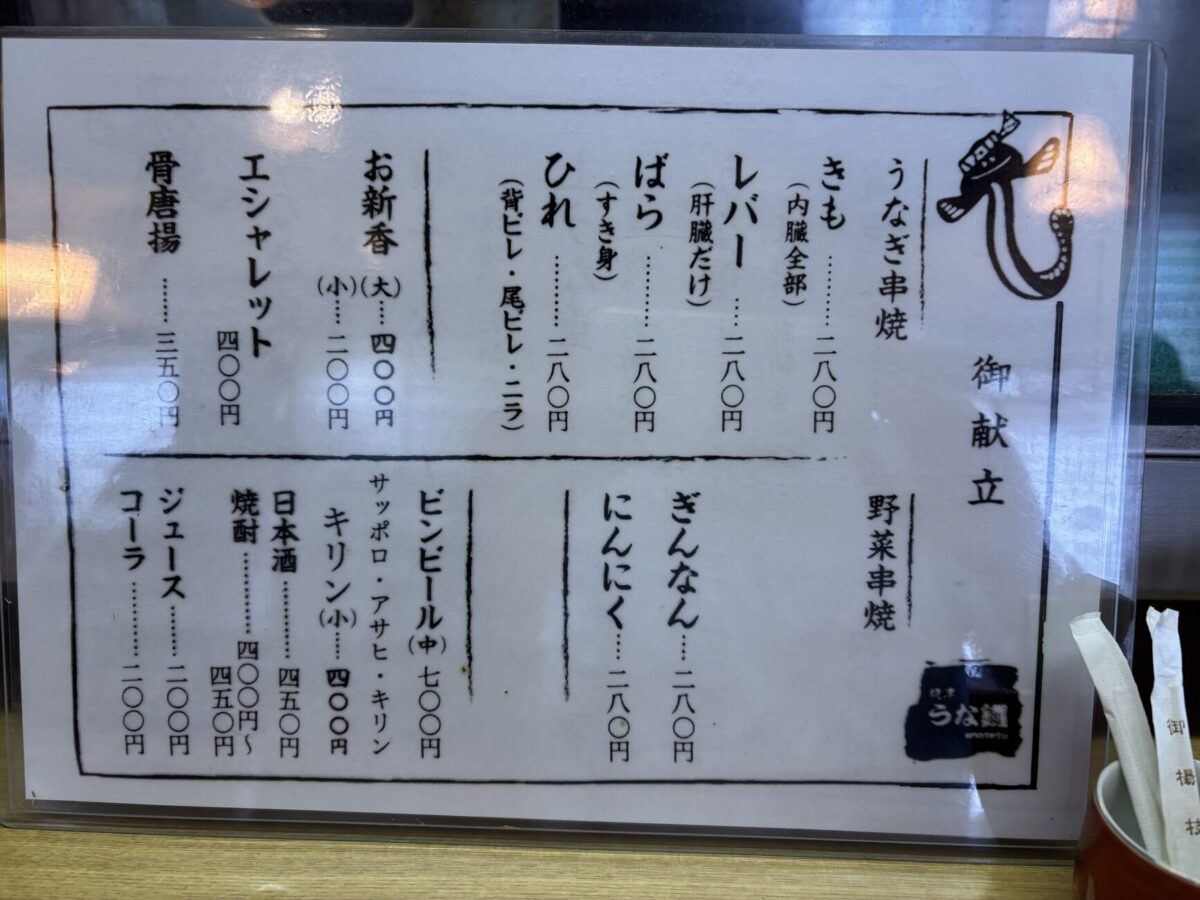 御献立
うなぎ串焼
きも……二八〇円
（内臓全部）
レバー…二八〇円
（肝臓だけ）
ばら……二八〇円
（すき身）
ひれ……二八〇円
（背ビレ・尾ビレ・ニラ）
お新香（大）…四〇〇円
（小）…二〇〇円
エシャレット
四〇〇円
骨唐揚……三五〇円
野菜串焼
ぎんなん…二八〇円
にんにく…二八〇円
ビンビール（中）七〇〇円
サッポロ・アサヒ・キリン
キリン（小）…四〇〇円
日本酒……四五〇円
焼酎……四〇〇円〜
四五〇円
ジュース……二〇〇円
コーラ……二〇〇円
うな鐵
御楊枝